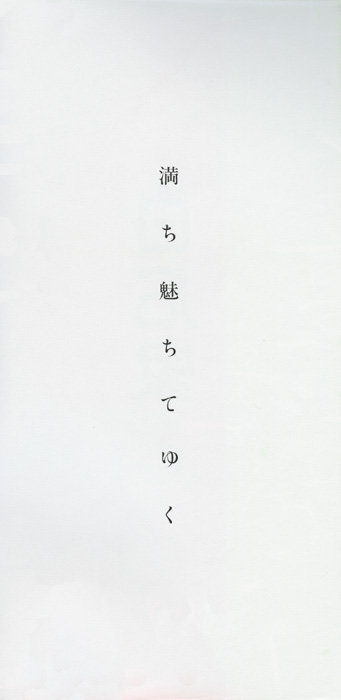 満ち魅ちてゆく